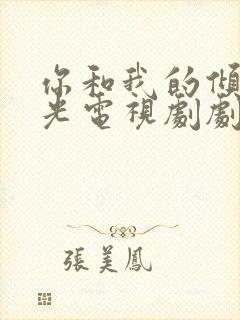 你和我的傾
光電視劇劇
張美鳳